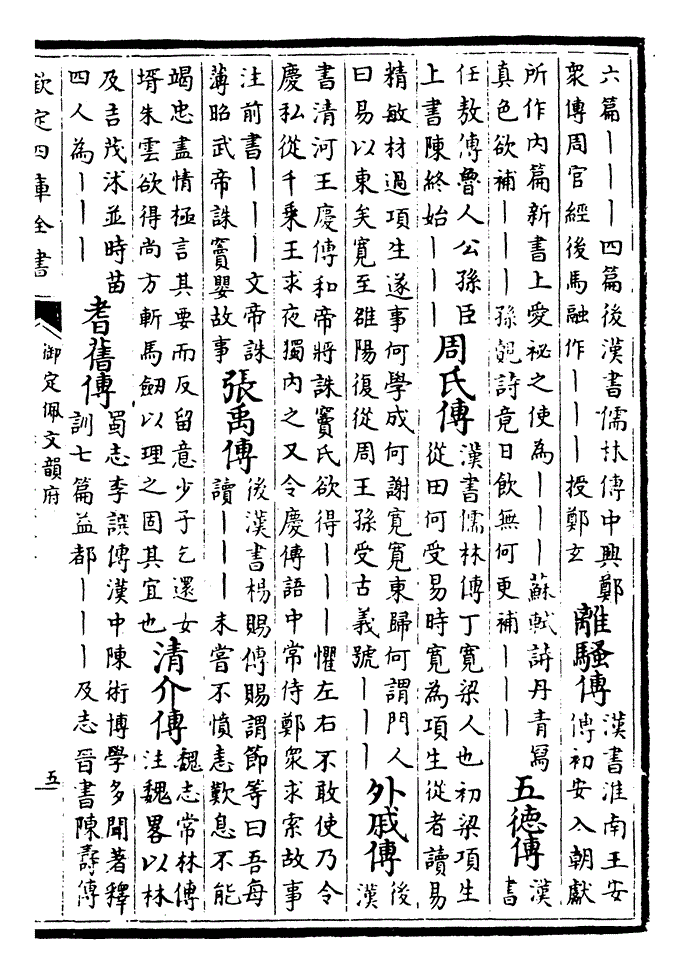 六篇｜｜｜四篇後漢書儒林傳中興鄭
衆傳周官經後馬融作｜｜｜授鄭玄
離騷傳
漢書淮南王安
傳初安入朝獻
所作内篇新書上愛秘之使為｜｜｜蘇軾詩丹青寫
真色欲補｜｜｜孫覿詩竟日飲無何更補｜｜｜
五德傳
漢
書
任敖傳魯人公孫臣
上書陳終始｜｜｜
周氏傳
漢書儒林傳丁寛梁人也初梁項生
從田何受易時寛為項生從者讀易
精敏材過項生遂事何學成何謝寛寛東歸何謂門人
曰易以東矣寛至雒陽復從周王孫受古義號｜｜｜
外戚傳
後
漢
書清河王慶傳和帝將誅竇氏欲得｜｜｜懼左右不敢使乃令
慶私從千乗王求夜獨内之又令慶傳語中常侍鄭衆求索故事
注前書｜｜｜文帝誅
薄昭武帝誅竇嬰故事
張禹傳
後漢書楊賜傳賜謂節等曰吾每
讀｜｜｜未嘗不憤恚歎息不能
竭忠盡情極言其要而反留意少子乞還女
壻朱雲欲得尚方斬馬劒以理之固其宜也
清介傳
魏志常林傳
注魏畧以林
及吉茂沭並時苗
四人為｜｜｜
耆舊傳
蜀志李譔傳漢中陳術博學多聞著釋
訓七篇益都｜｜｜及志晉書陳壽傳
欽定四庫全書
御定佩文韻府
五